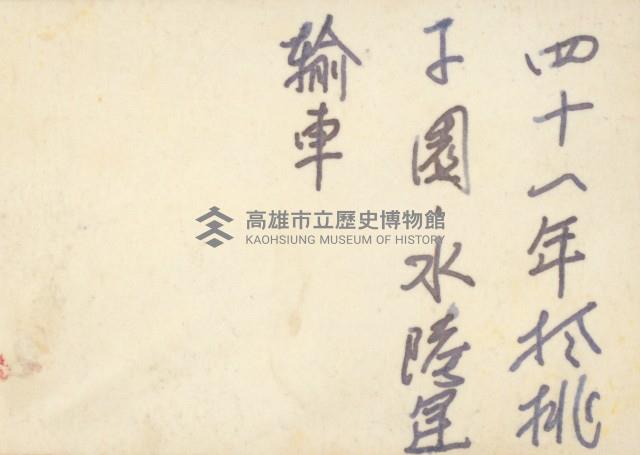 四十八年於桃
子園水陸運
輸車
高雄市立歷史博物館
KAOHSIUNG MUSEUM OF HISTORY